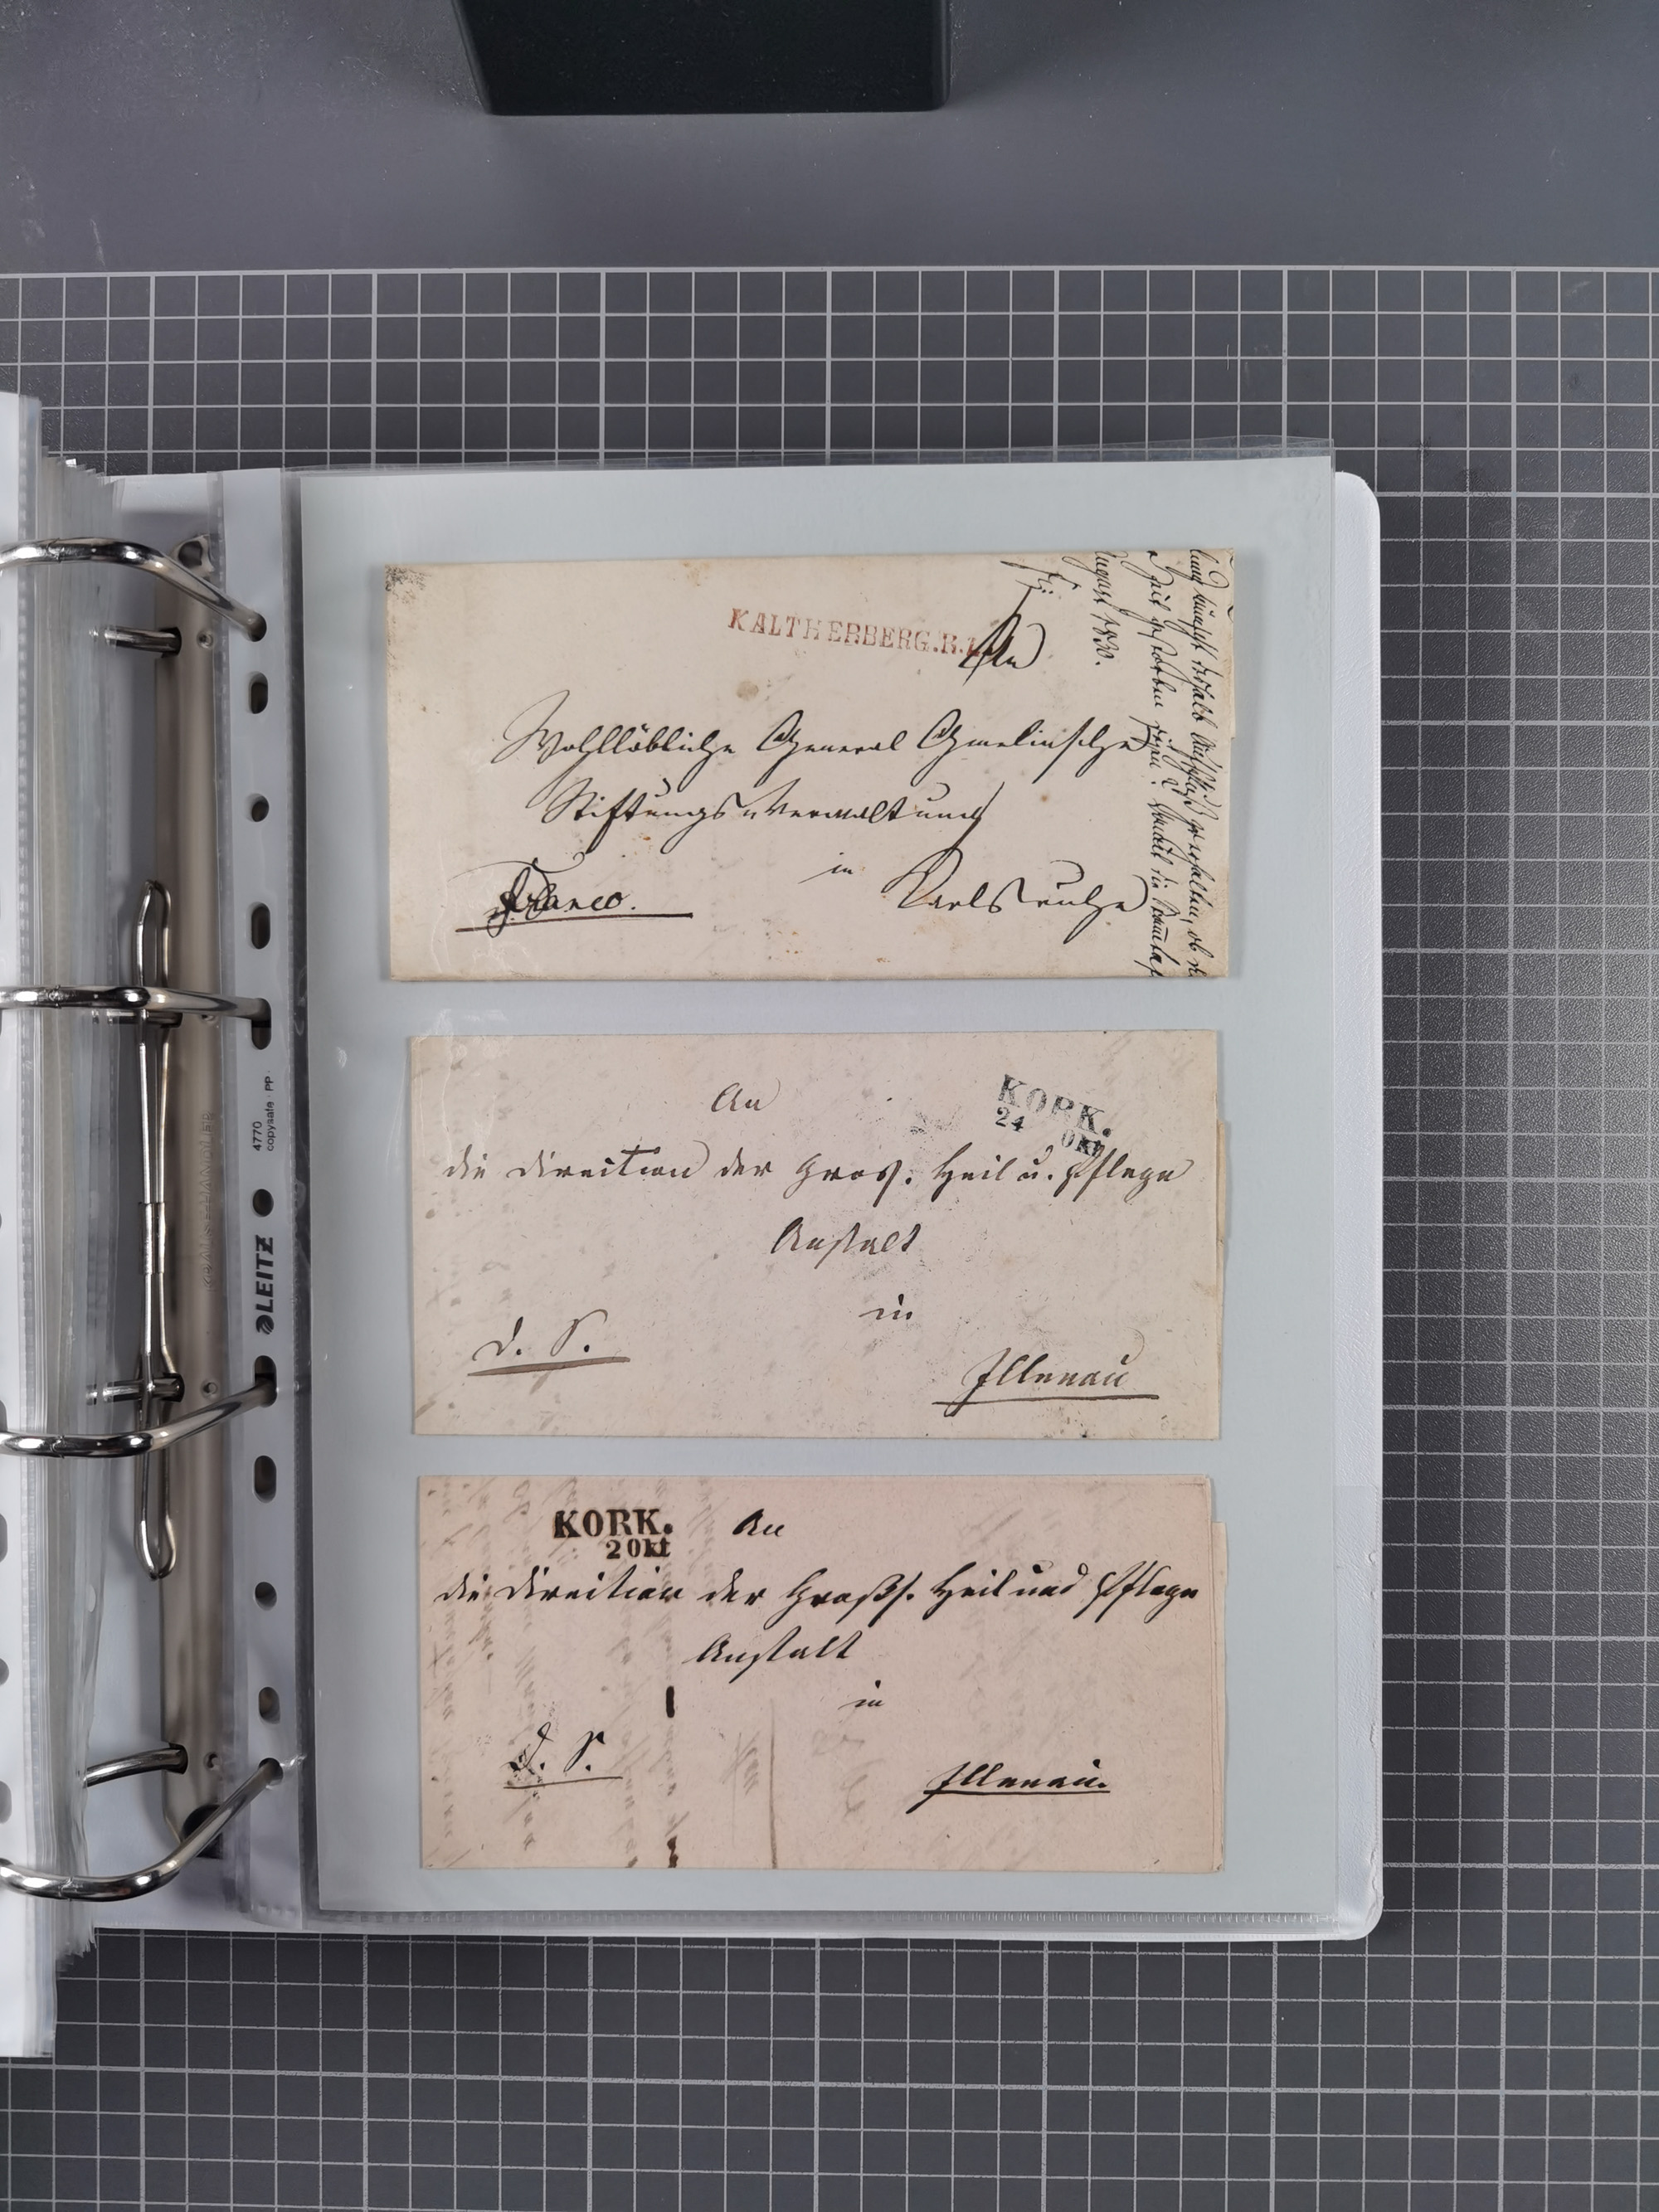 KALTHERBERG.R.
An
Wohllöbliche General Gmelinsche
Stiftungs Verwaltung
in Karlsruhe
Franco.
August 1830.
KORK.
24 Okt
An
die Direction der Gros. Heil u. Pflege
Anstalt
in
D. S.
Illenau
KORK.
2 Okt
An
die Direction der Großh. Heil und Pflege
Anstalt
in
D. S.
Illenau.
LEITZ
4770
copysafe PP